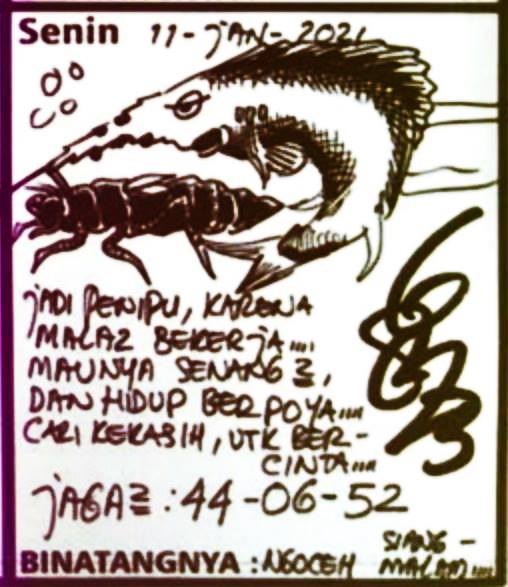 Senin 11-JAN-2021
JADI PENIPU, KARENA
MALAZ BEKERJA....
MAUNYA SENANG 2,
DAN HIDUP BERPOYA....
CARI KEKASIH, UTK BER-
CINTA....
JAGA2 : 44-06-52
BINATANGNYA : NGOCEH SIANG-
MALAM....